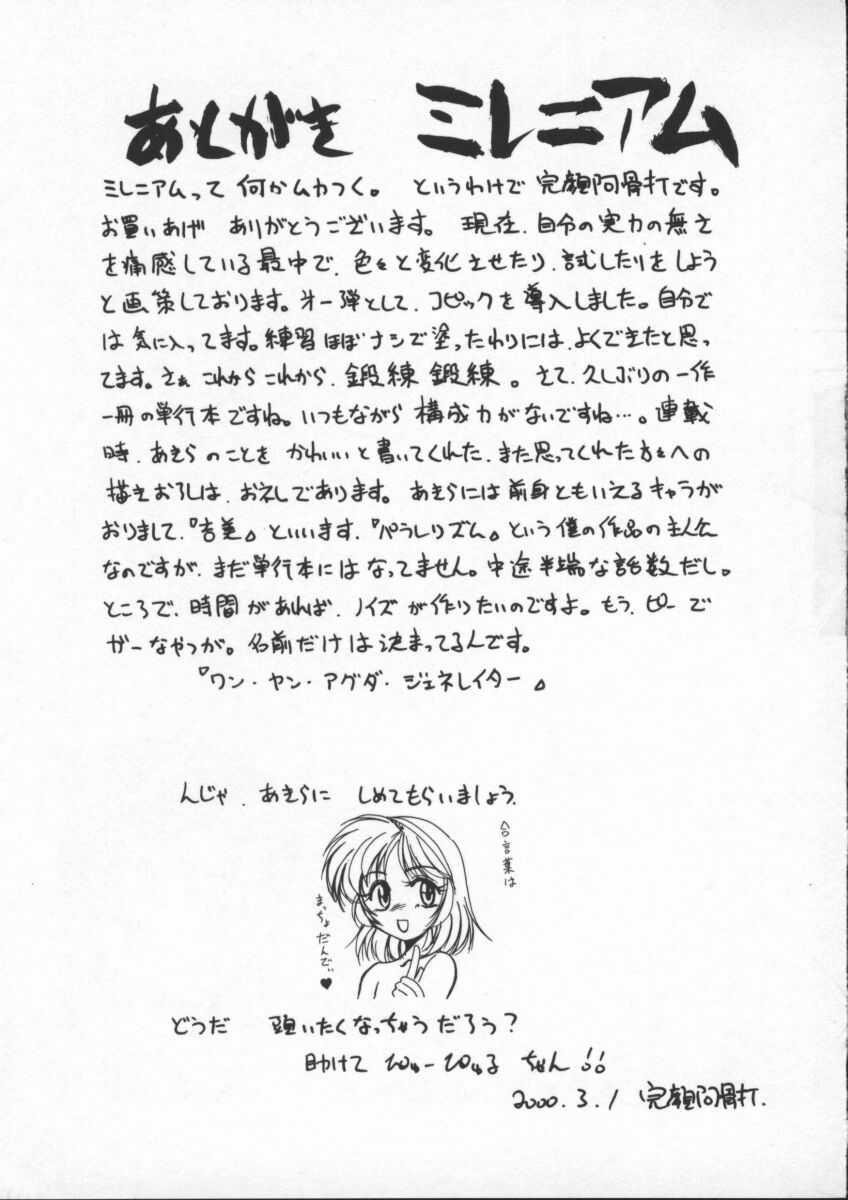 あとがき ミレニアム
ミレニアムって 何かムカつく。 というわけで 完顔阿骨打です。
お買いあげ ありがとうございます。 現在、自分の実力の無さ
を痛感している最中で、色々と変化させたり、試したりをしよう
と画策しております。才一弾として、コピックを導入しました。自分で
は気に入ってます。練習ほぼナシで塗ったわりには、よくできたと思っ
てます。さぁ これから これから、鍛練 鍛練。さて、久しぶりの一作
一冊の単行本ですね。いつもながら 構成力がないですね…。連載
時、あきらのことを かわいいと書いてくれた、また思ってくれた方々への
描きおろしは、おえしであります。あきらには前身ともいえるキャラが
おりまして、『吉美』といいます、『パラレリズム』という僕の作品の主人公
なのですが、まだ単行本にはなってません。中途半端な話数だし。
ところで、時間があれば、ノイズが作りたいのですよ。もう、ピーで
ガーなやつが。名前だけは決まってるんです。
『ワン・ヤン・アグダ・ジェネレイター』
んじゃ、あきらに しめてもらいましょう、
合言葉は
まっちょだんでぃ♥
どうだ 頭いたくなっちゃうだろう?
助けて ぴゅーぴゅる ちゃん!!
2000.3.1 完顔阿骨打.